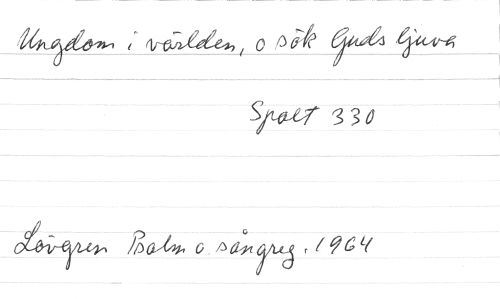 Ungdom i världen, o sök Guds ljuva
Spalt 330
Lövgren Psalm o sångreg. 1964